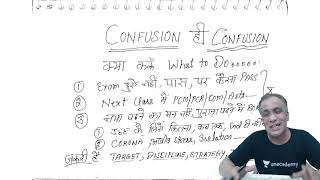 CONFUSION ही CONFUSION
क्या करूँ What to Do......
① Exam हुये नहीं, पास, पर कैसा PASS?
② Next Class में PCM/PCB/COM/Arts
③ नया पढ़ने का मन नहीं, पुराना पढ़ने में
① JEE के लिये कितना, कब तक,
② CORONA, Isolation
ज़रूरी है TARGET, DISCIPLINE, STRATEGY,
unacademy